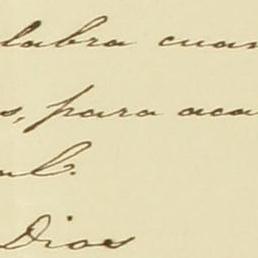 labra cuan
s, para aca
al.
Dios